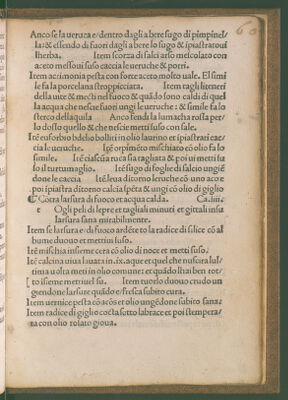 60
Anco se la veruca e/dentro dagli a bere sugo di pimpinel-
la: & essendo di fuori dagli a bere lo sugo & ipiastratoui
lherba. Item scorza di salci arso melcolato con
aceto messoui suso caccia le veruche & porri.
Item acrimonia pesta con forte aceto molto uale. El simi
le fa la porcelana stroppicciata. Item tagli literieri
della uite & metti nel fuoco & quādo sono caldi di quel
la acqua che nesce fuori ungi le veruche: & simile fa lo
sterco della quila Anco fendi la lumacha rossa per
lo dosso quello & che nesci metti suso con sale.
Itē euforbio bdelio bolliti in olio laurino et ipiastrati cac
cia le veruche. Itē orpimēto mischiato cō olio fa lo
simile. Itē ciascūa ruca sia tagliata & poi ui metti su
so il turtumaglio. Itē sugo di foglie di salcio ungiē
done le caccia Itē leua di torno leruche cō uno aco e
poi ipiastra ditorno calcia spēta & ungi cō olio di giglio
Cōtra larsura di fuoco et acqua calda. Ca.iiii.
e Ogli peli di lepre et tagliali minuti et gittali insu
larsura sana mirabilmente.
Item se larsura e di fuoco ardēte to la radice di silice cō al
bume duouo et mettiui suso.
Itē mischia insieme cera cō olio di noce et metti suso.
Itē calcina uiua lauata in .ix. aque et quel che nuscira lul-
tima uolta meti in olio comune: et quādo lhai ben rot-
to isieme mettiuel su. Item tuorlo duouo crudo un
giendone larsure quādo e/fresca subito cura.
Item uernice pesta cō acōs et olio ungēdone subito sana:
Item radice di giglio cocta sotto la brace et poi stempera-
ta con olio rosato gioua.